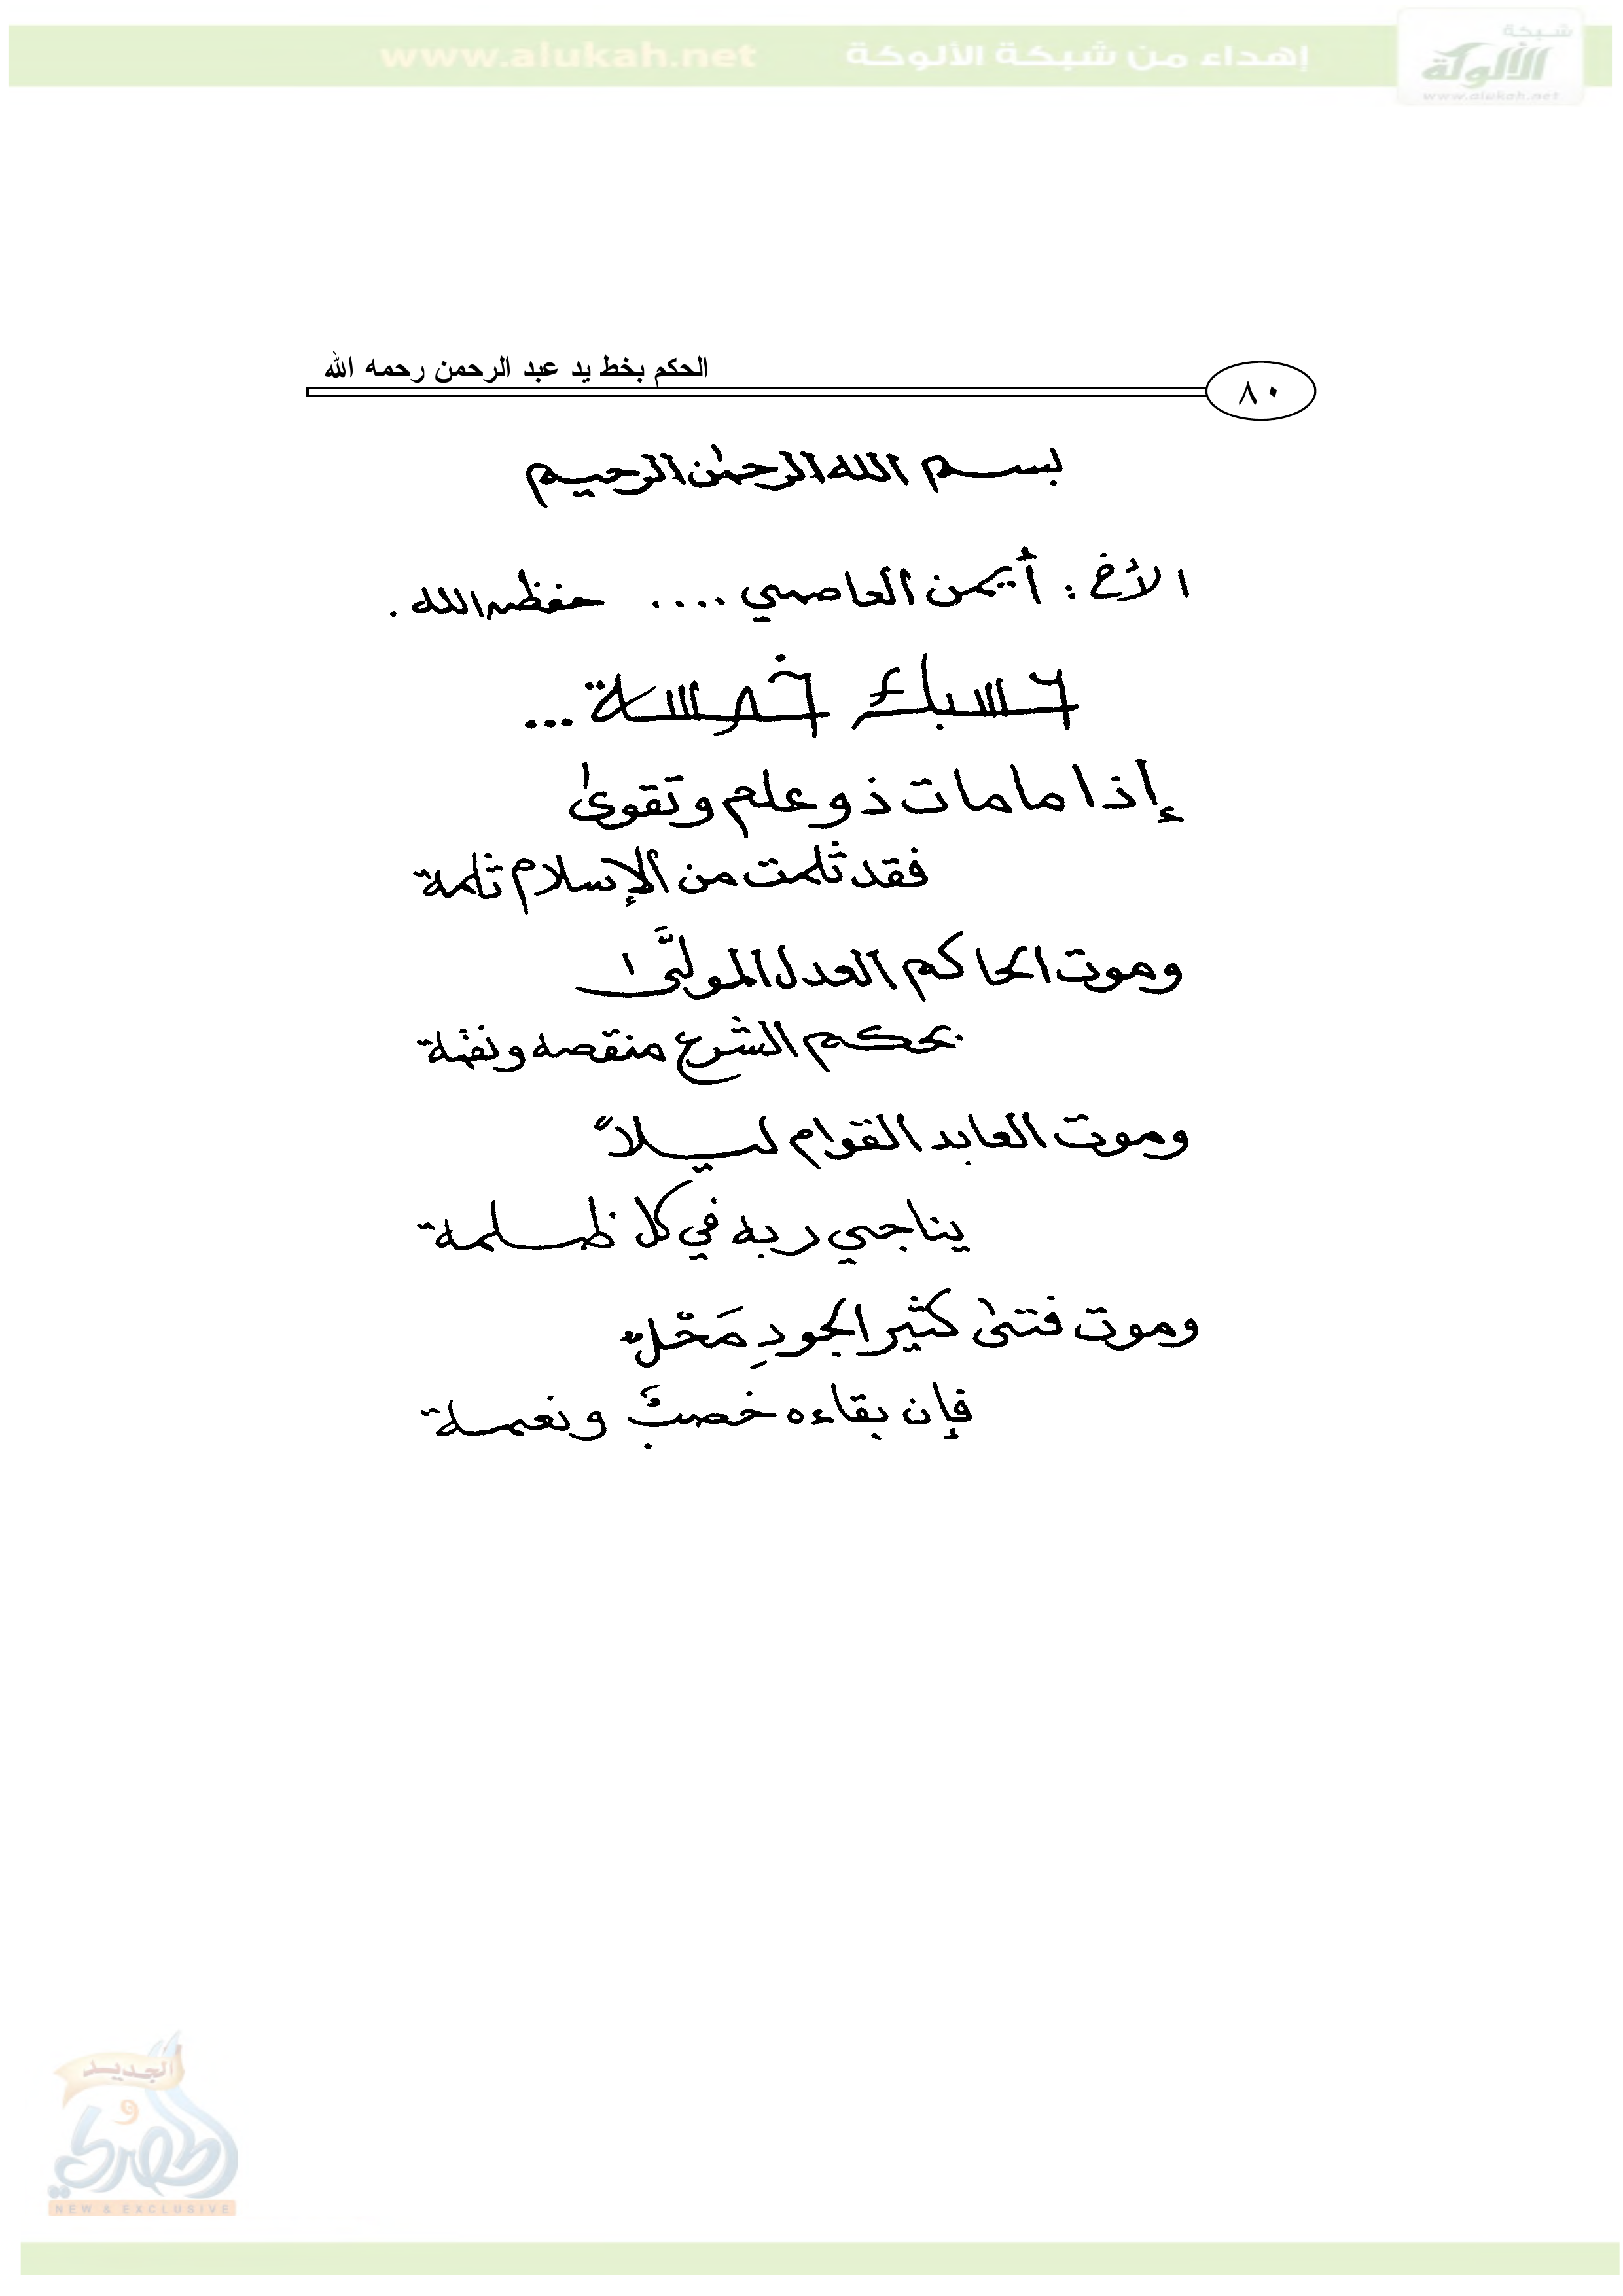 www.alukah.net إهداء من شبكة الألوكة
شبكة
الألوكة
www.alukah.net
الحكم بخط يد عبد الرحمن رحمه الله
٨٠
بسم الله الرحمٰن الرحيم
الأخ : أيمن العاصمي .... حفظه الله .
حسبك خمسة ...
إذا ما مات ذو علم وتقوىٰ
فقد ثلمت من الإسلام ثلمة
وموت الحاكم العدل المولَّىٰ
بحكم الشرع منقصه ونقمة
وموت العابد القوام ليلاً
يناجي ربه في كل ظلمة
وموت فتىٰ كثير الجودِ مَحْلٌ
فإن بقاءه خصبٌ ونعمة
الجديد
و
الحصري
NEW & EXCLUSIVE